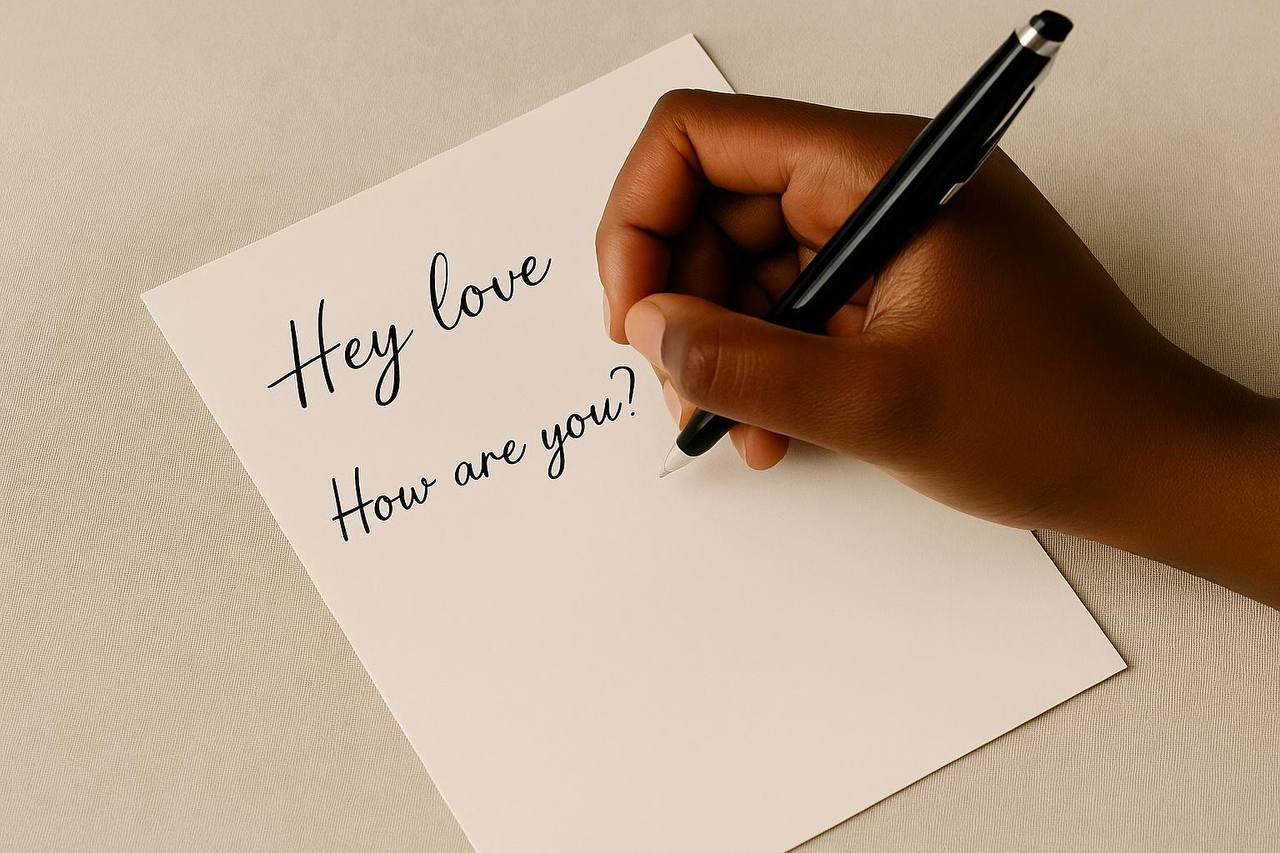 Hey love
How are you?